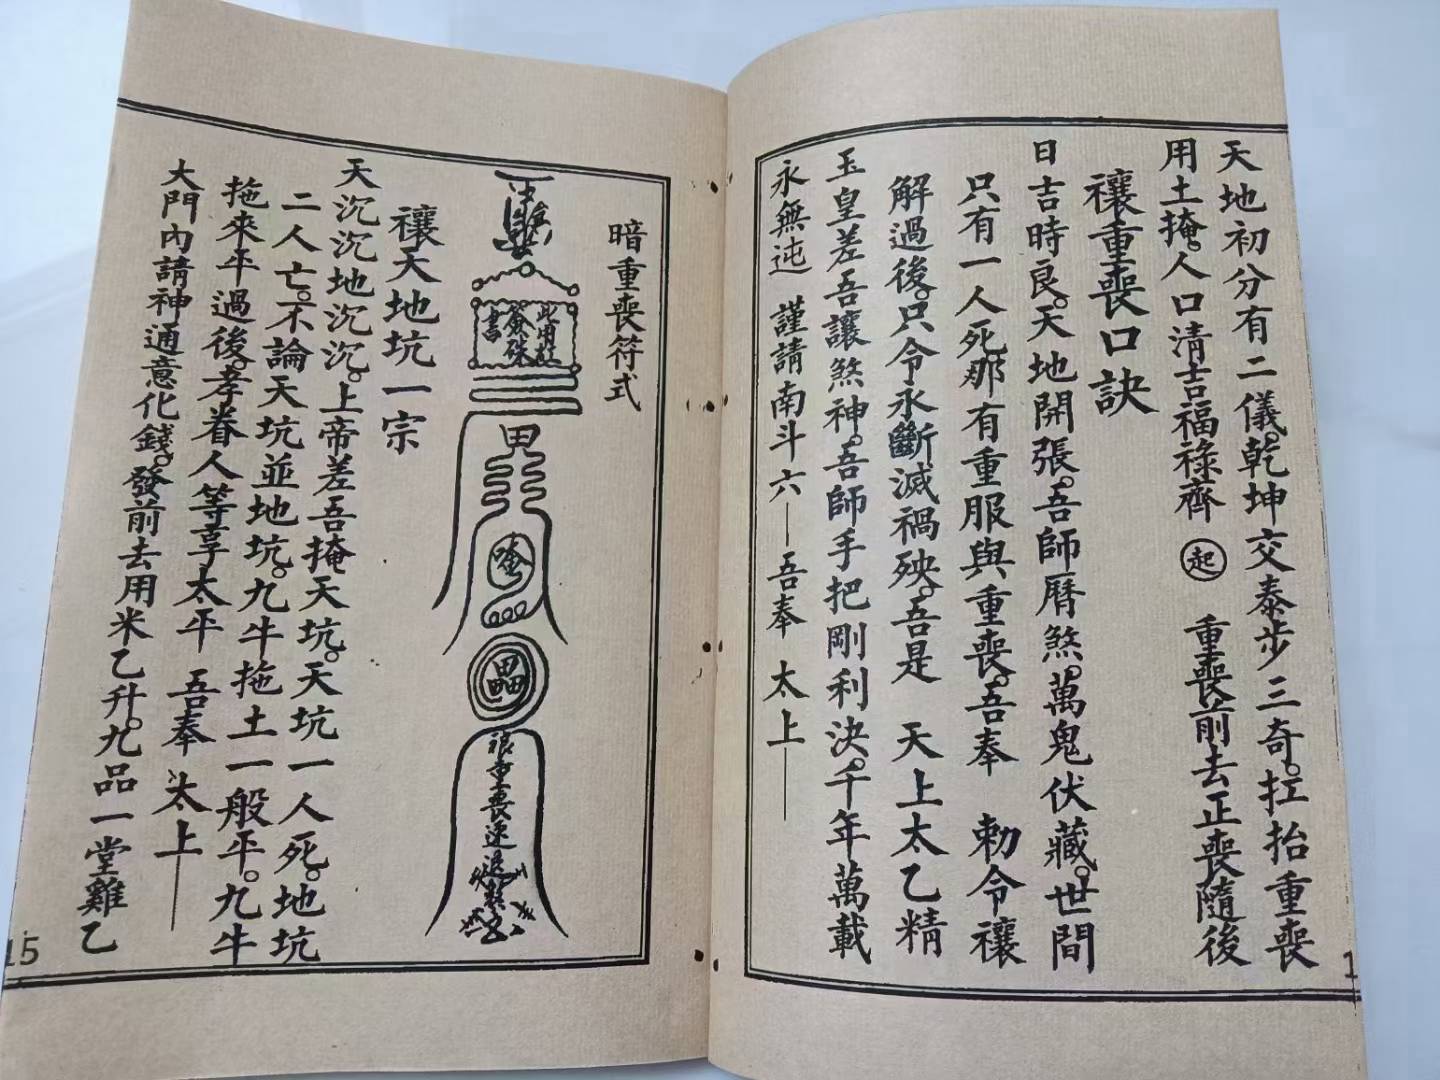 天地初分有二儀。乾坤交泰步三奇。扛抬重喪
用土掩。人口清吉福祿齊 起 重喪前去正喪隨後
禳重喪口訣
日吉時良。天地開張。吾師曆煞。萬鬼伏藏。世間
只有一人死那有重服與重喪。吾奉 勅令禳
解過後。只令永斷滅禍殃。吾是 天上太乙精
玉皇差吾讓煞神。吾師手把剛利決。千年萬載
永無迍 謹請南斗六 吾奉 太上
1
暗重喪符式
此用硃
書
田
畾
重喪
禳天地坑一宗
天沉沉地沉沉。上帝差吾掩天坑。天坑一人死。地坑
二人亡。不論天坑並地坑。九牛拖土一般平。九牛
拖來平過後。孝眷人等享太平 吾奉 太上
大門內請神通意化錢。發前去用米乙升。九品一堂雞乙
15